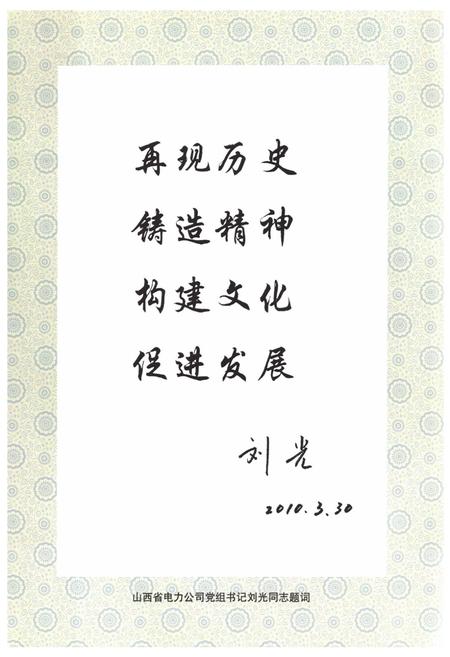 再现历史
铸造精神
构建文化
促进发展
刘光
2010.3.30
山西省电力公司党组书记刘光同志题词